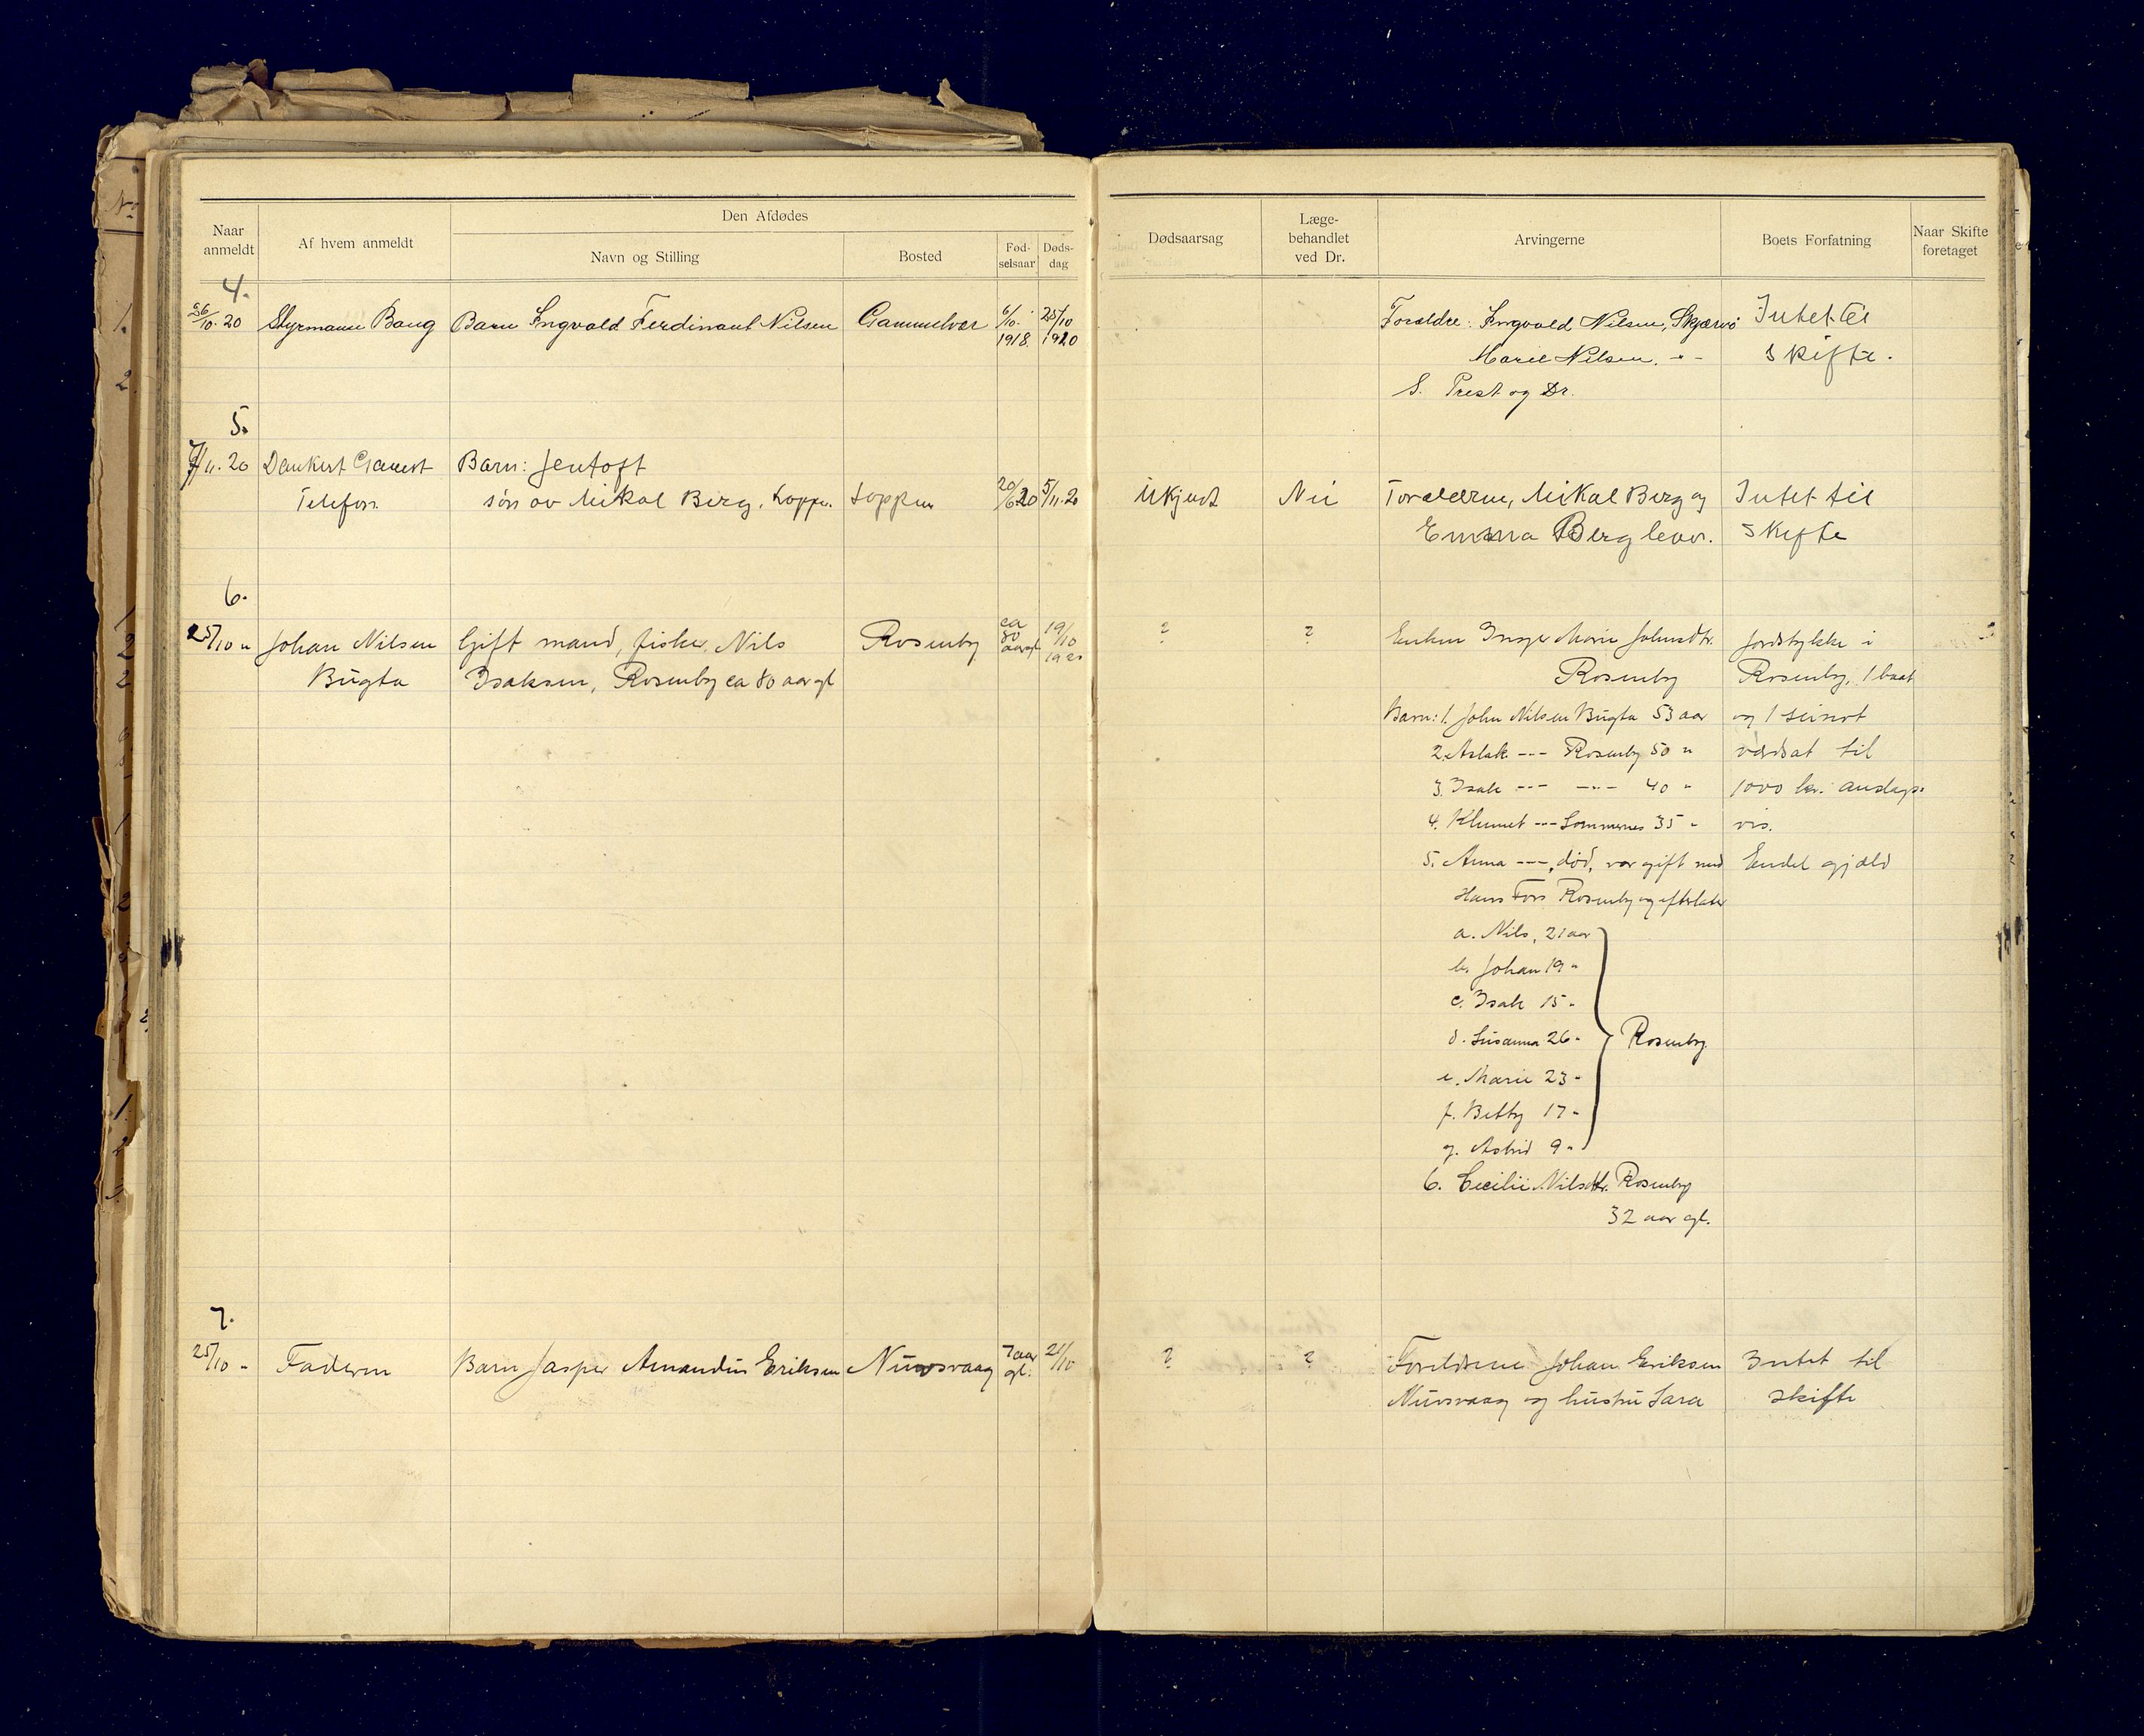 Naar anmeldt
Af hvem anmeldt
Den Afdødes
Navn og Stilling
Bosted
Fød-selsaar
Døds-dag
Dødsaarsag
Læge-behandlet ved Dr.
Arvingerne
Boets Forfatning
Naar Skifte foretaget
4.
26/10.20 Styrmann Baug Barn Ingvald Ferdinant Nilsen Gammelvær 6/10. 1918. 25/10 1920
Forældre: Ingvald Nilsen, Skjærvø Intet til
Marie Nilsen. -"- Skifte.
S. Prest og Dr.
5.
7/11.20 Dankert Barn: Jentoft
Telefon. søn av Mikal Berg, Loppen. Loppen 20/6.20 5/11.20 Ukjendt Nei Foræeldrene, Mikal Berg og Intet til
Emma Berg lever. Skifte
6.
25/10 " Johan Nilsen Gift mand, fisker, Nils Rosenby ca 80 aar gl 19/10 1920 ? ? Enken Inger Marie Johnsdtr. Jordstykke i
Bugta Isaksen, Rosenby ca 80 aar gl Rosenby Rosenby, 1 baat
Barn: 1. John Nilsen Bugta 53 aar og 1 seinot
2. Aslak --- Rosenby 50 " værdsat til
3. Isak --- -"- 40 " 1000 kr. anslags-
4. Klemet --- Sommernes 35 " vis.
5. Anna ---, død, var gift med Endel gjæld
Hans Fors Rosenby og efterlater
a. Nils, 21 aar
b. Johan 19 "
c. Isak 15 "
d. Susanna 26 " Rosenby.
e. Marie 23 "
f. Betty 17 "
g. Astrid 9 "
6. Cecilie Nilsdtr. Rosenby
32 aar gl.
7.
25/10 " Faderen Barn Jasper Amandus Eriksen Nuvsvaag 7 aar gl. 21/10 ? ? Foreldrene Johan Eriksen Intet til
Nuvsvaag og hustru Sara skifte